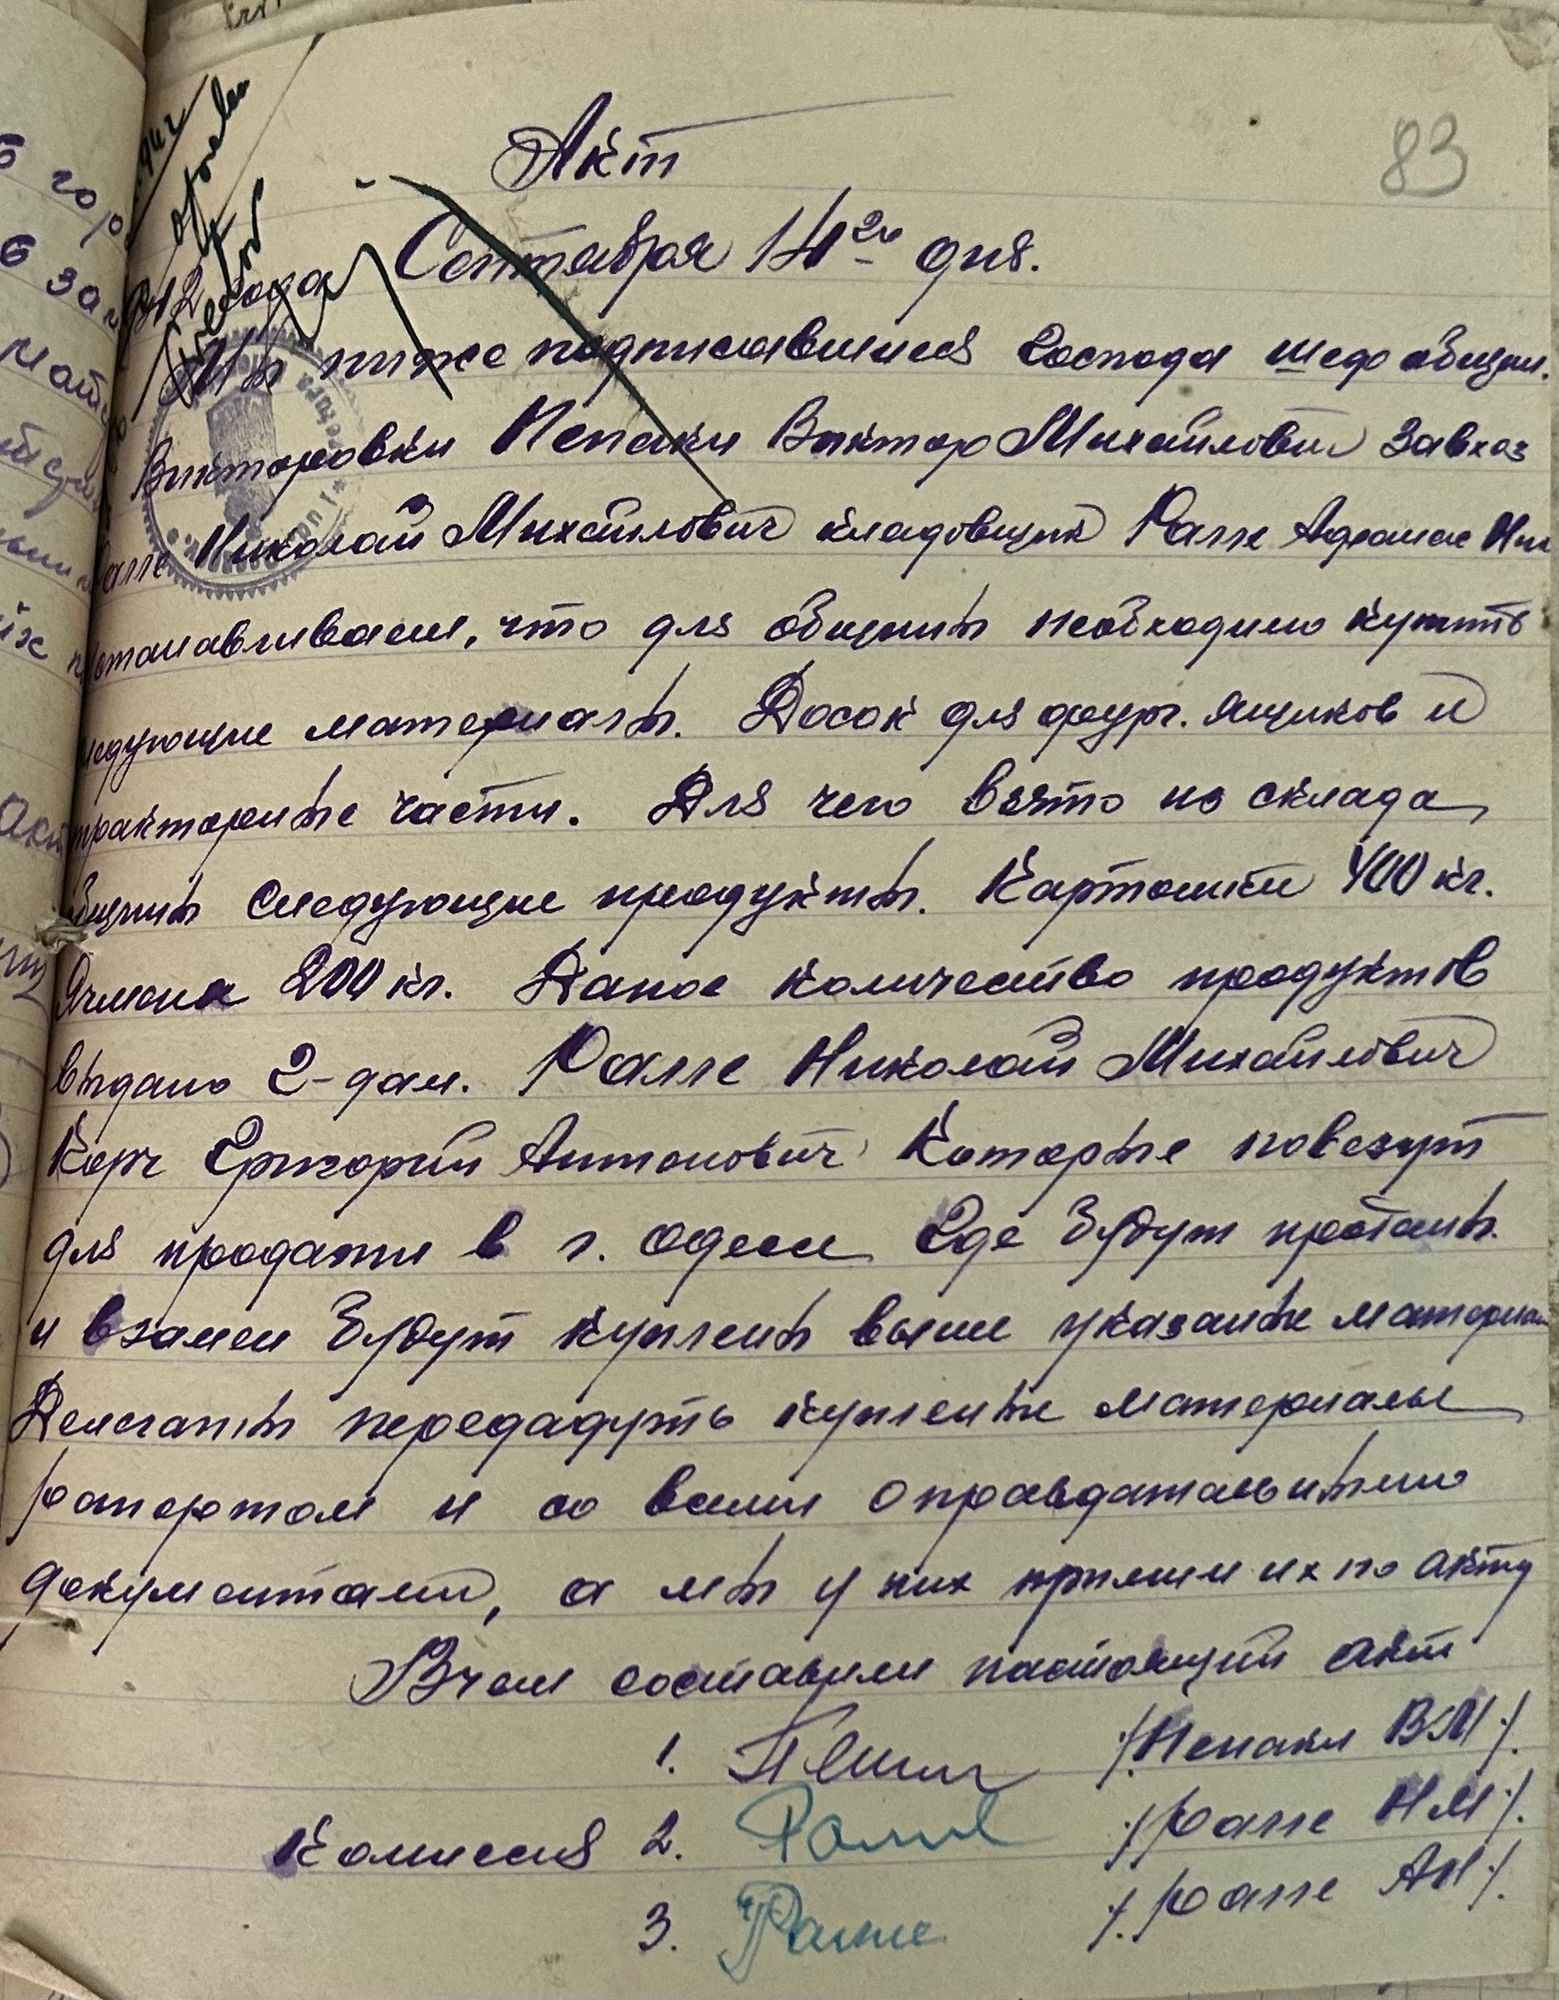 83
Акт
1942 года Сентября 14го дня.
Мы ниже подписавшиеся Господа шеф общин.
Викторовки Непаки Виктор Михайлович Завхоз
Ралле Николай Михайлович кладовщик Ралле Адрамас Ник
устанавливаем, что для общины необходимо купить
следующие материалы. Досок для фург. ящиков и
тракторные части. Для чего взято из склада
общины следующие продукты. Картошки 400 кг.
Ячменя 200 кг. Даное количество продуктов
выдано 2-дам. Ралле Николай Михайлович
Корч Григорий Антонович Которые повезут
для продажи в г. Одесси Где будут проданы.
и взамен будут куплены выше указаные материал
Делегаты передадуть купленые материалы
рапортом и со всеми оправдательными
документами, а мы у них примим их по акту
Вчем составили настоящий акт
1. /Непаки ВМ/.
Комиссия 2. Ралле /Ралле НМ/.
3. Ралле /Ралле АН/.